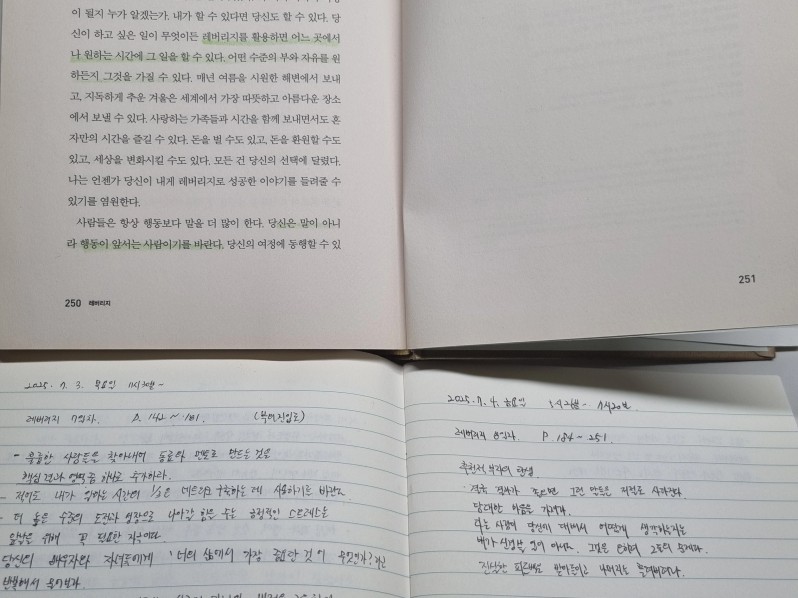 이 될지 누가 알겠는가. 내가 할 수 있다면 당신도 할 수 있다. 당
신이 하고 싶은 일이 무엇이든 레버리지를 활용하면 어느 곳에서
나 원하는 시간에 그 일을 할 수 있다. 어떤 수준의 부와 자유를 원
하든지 그것을 가질 수 있다. 매년 여름을 시원한 해변에서 보내
고, 지독하게 추운 겨울은 세계에서 가장 따뜻하고 아름다운 장소
에서 보낼 수 있다. 사랑하는 가족들과 시간을 함께 보내면서도 혼
자만의 시간을 즐길 수 있다. 돈을 벌 수도 있고, 돈을 환원할 수도
있고, 세상을 변화시킬 수도 있다. 모든 건 당신의 선택에 달렸다.
나는 언젠가 당신이 내게 레버리지로 성공한 이야기를 들려줄 수
있기를 염원한다.
사람들은 항상 행동보다 말을 더 많이 한다. 당신은 말이 아니
라 행동이 앞서는 사람이기를 바란다. 당신의 여정에 동행할 수 있
250 레버리지
251
2025. 7. 3. 목요일 11시 30분 -
레버리지 7일차. P. 142 ~ 181.
- 훌륭한 사람들은 찾아내어 동료와 멘토로 만드는 것을
핵심 결과 영역 중 하나로 추가하라.
- 적어도 내가 일하는 시간의 1/3은 네트워크 구축하는 데 사용하기를 바란다
- 더 높은 수준의 도전과 성장으로 나아갈 힘을 주는 긍정적인 스트레스는
꼭 필요한 자극이다
당신의 배우자와 자녀들에게 '너의 삶에서 가장 중요한 것이 무엇이냐?'라고
2025. 7. 4. 금요일
레버리지 8일차. P. 184 - 251.
결국 그런 안목은 저절로 사라진다
담대한 마음을 가져라.
다른 사람이 당신에 대해서 어떻게 생각하는지는
네가 신경쓸 일이 아니다. 그것은 온전히 그들의 문제다.
진실한 피드백만 받아들이고 나머지는 흘려버려라.